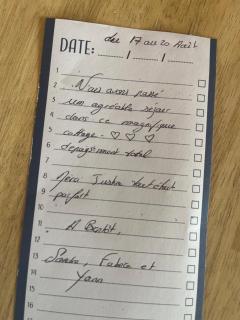 du 17 au 20 Août
DATE: __/__/__
1
2 Nous avons passé
3 un agréable séjour
4 dans ce magnifique
5 cottage - ♡ ♡ ♡
6 depaysement total
7
8 Merci Justine tout était
9 parfait
10
11 A Bientôt,
12
13 Sandra, Fabrice et
14 Yann
15